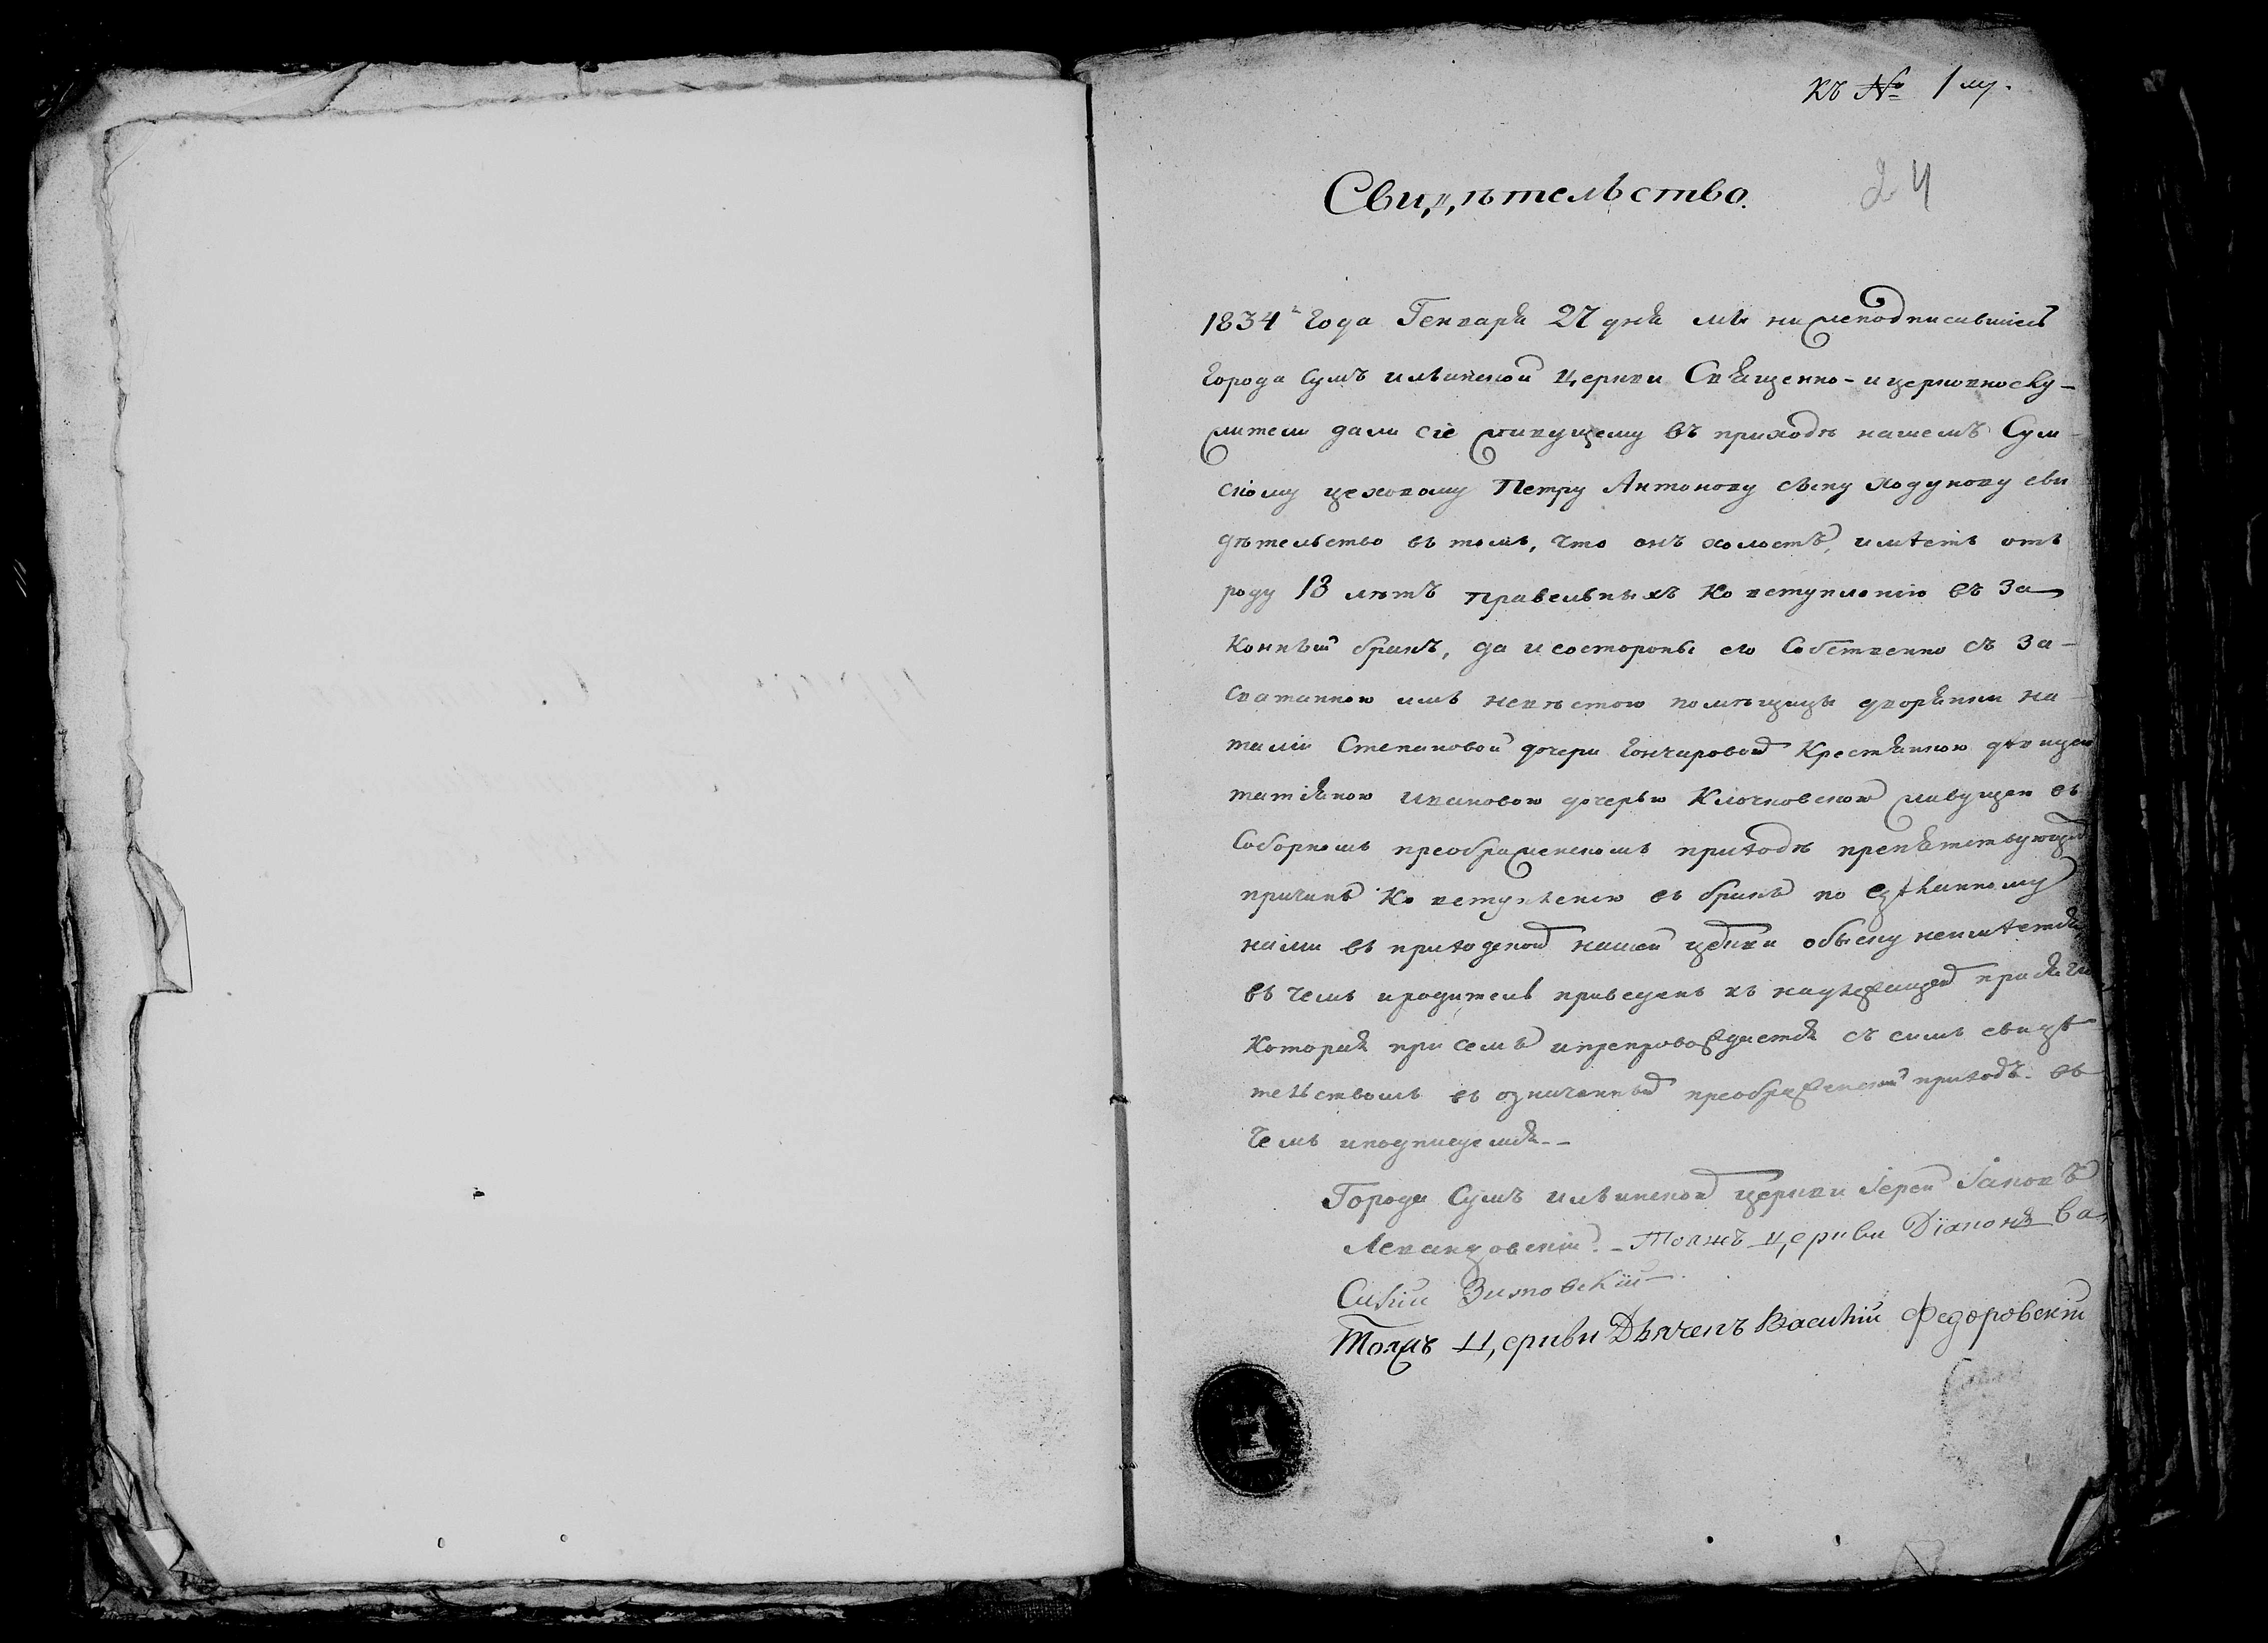 къ № 1му.
24
Свидѣтельство.
1834г года Генваря 27 дня мы нижеподписавшіесь
города Сумъ ильинской церкви Священно-и церковнослу-
жители дали сіе живущему въ приходѣ нашемъ Сум-
скому цеховому Петру Антонову сыну Ходунову сви
дѣтельство въ томъ, что онъ холостъ, имѣетъ отъ
роду 18 лѣтъ правельныхъ ко вступленію въ за
конный бракъ, да и состороны его собственно съ за-
сватанною имъ невѣстою помѣщицы дворянки на-
таліи Степановой дочери Гончаровой крестьянкою дѣвицею
татіяною ивановою дочерью Клочковскою живущею въ
Соборномъ преображенскомъ приходѣ препятствующей
причины ко вступленію въ бракъ по сдѣланному
нами въ приходской нашей церкви обыску неимѣется
въ чемъ иродитель приведенъ къ надлежащей присяги
которая при семъ ипрепровождается съ симъ свидѣ
тельствомъ въ означенный преображенский приходъ. въ
чемъ иподписуемся--
Города Сумъ ильинской церкви Іерей Іаковъ
Левандовскій. - Тоежъ церкви Діаконъ Ва-
силий Зимовскій
Тоежъ Церкви Дьячекъ Василий Федоровскій